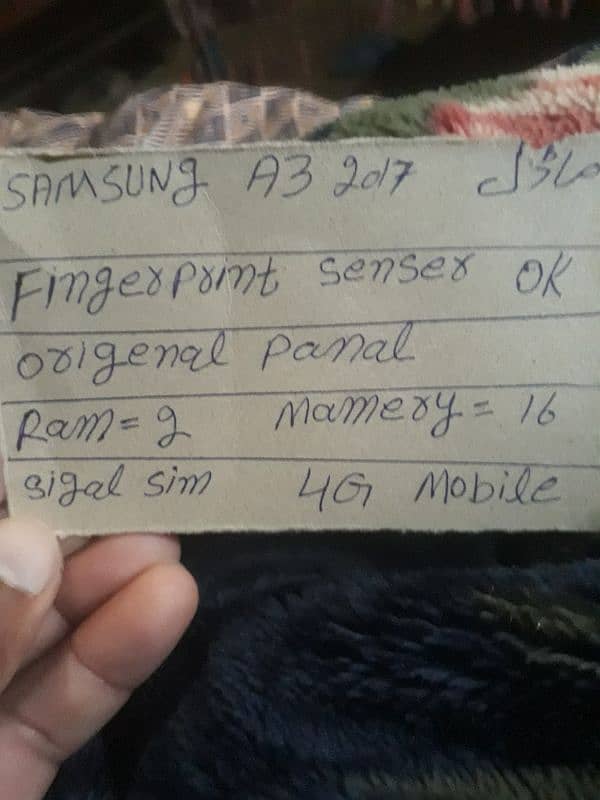 SAMSUNG A3 2017 ماڈل
Fingerprint Senser OK
origenal Panal
Ram = 2 Mamery = 16
sigal Sim 4G Mobile